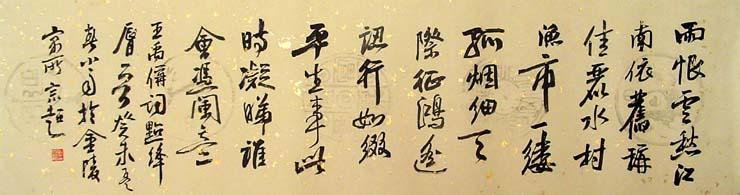 雨恨雲愁江
南依舊稱
佳麗水村
漁市一縷
孤烟細天
際征鴻遙
認行如綴
平生事此
時凝睇誰
會憑闌意
王禹偁詞點絳
脣 癸未
春 於金陵
寓所